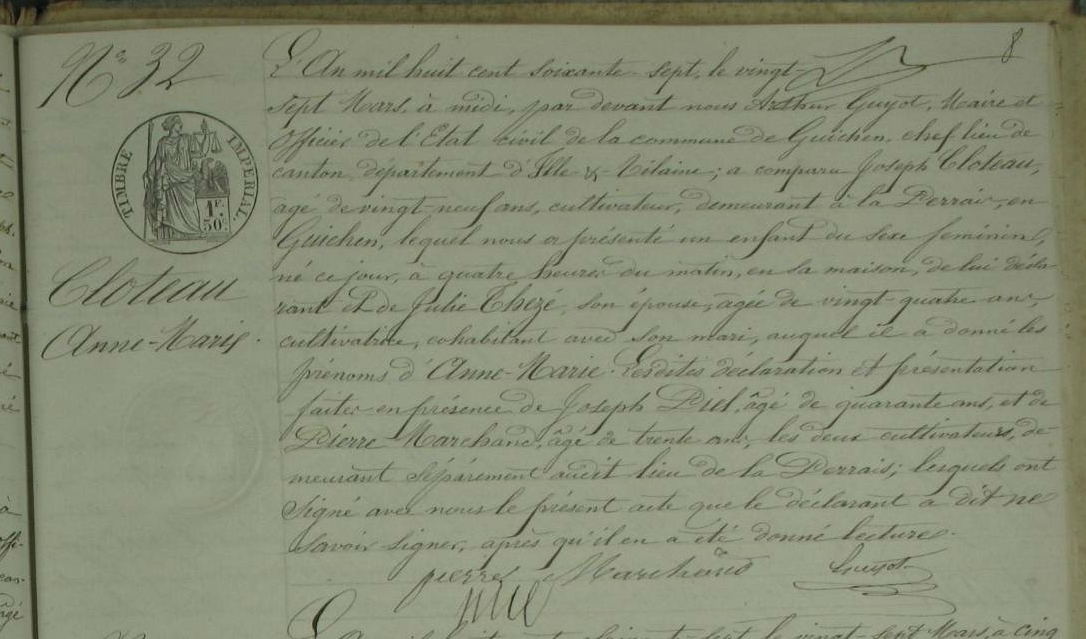 8
N° 32
L'An mil huit cent soixante-sept, le vingt
sept Mars, à midi, par devant nous Arthur Guyot, Maire et
officier de l'Etat civil de la commune de Guichen, chef lieu de
canton, département d'Ille & Vilaine; a comparu Joseph Cloteau,
agé de vingt-neuf ans, cultivateur, demeurant à la Derrais, en
Guichen, lequel nous a présenté un enfant du sexe feminin,
né ce jour, à quatre heures du matin, en sa maison, de lui décla-
rant et de Julie Thezé, son épouse, agée de vingt-quatre ans,
cultivatrice, cohabitant avec son mari, auquel il a donné les
prénoms d'Anne-Marie. Lesdites déclaration et présentation
faites en présence de Joseph Piel, âgé de quarante ans, et de
Pierre Marchand, âgé de trente ans, les deux cultivateurs, de-
meurant séparément audit lieu de la Derrais; lesquels ont
signé avec nous le présent acte que le déclarant a dit ne
savoir signer, après qu'il en a été donné lecture.
pierre Marchand Guyot
TIMBRE IMPERIAL.
1F.
50C.
Cloteau
Anne-Marie.